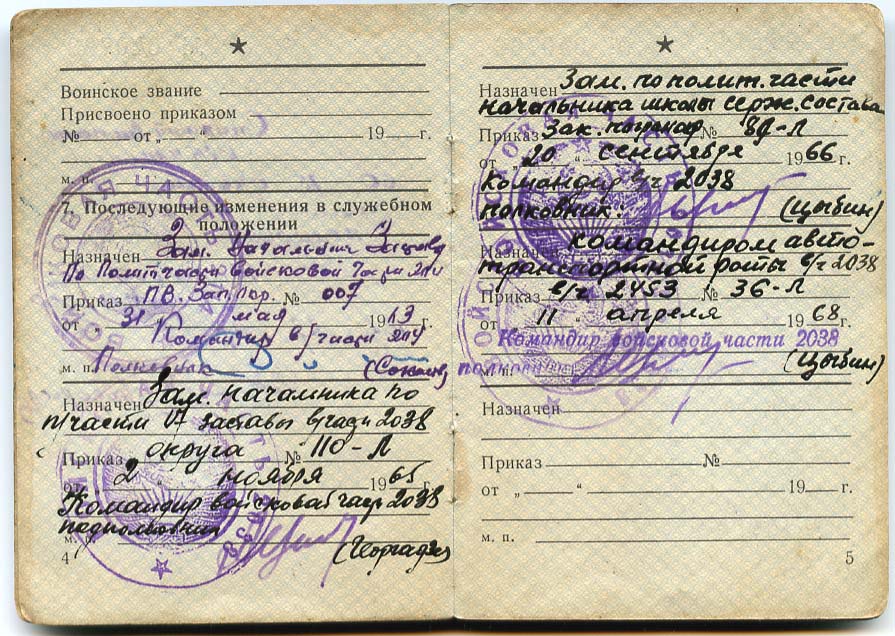 Воинское звание
Присвоено приказом
№ от „ “ 19 г.
м. п.
7. Последующие изменения в служебном
положении
Назначен Зам.
по политчасти войсковой части
Приказ ПВ. Зап. пор. № 007
от 31 мая 19 г.
Командир в/части
м. п. Полковник
Назначен Зам. начальника по
п/части 17 заставы в/части 2038
Приказ округа № 110-Л
от 2 ноября 1965 г.
Командир войсковой части 2038
подполковник
м. п. (Георгадзе)
4
Назначен Зам. по полит. части
начальника школы серж. состава
Приказ Зак. погранокр № 82-Л
от „20“ сентября 1966 г.
Командир в/ч 2038
полковник: (Цыбин)
Назначен командиром авто-
транспортной роты в/ч 2038
в/ч 2453 № 36-Л
от 11 апреля 1968 г.
Командир войсковой части 2038
м. п. полковник (Цыбин)
Назначен
Приказ №
от „ “ 19 г.
м. п.
5